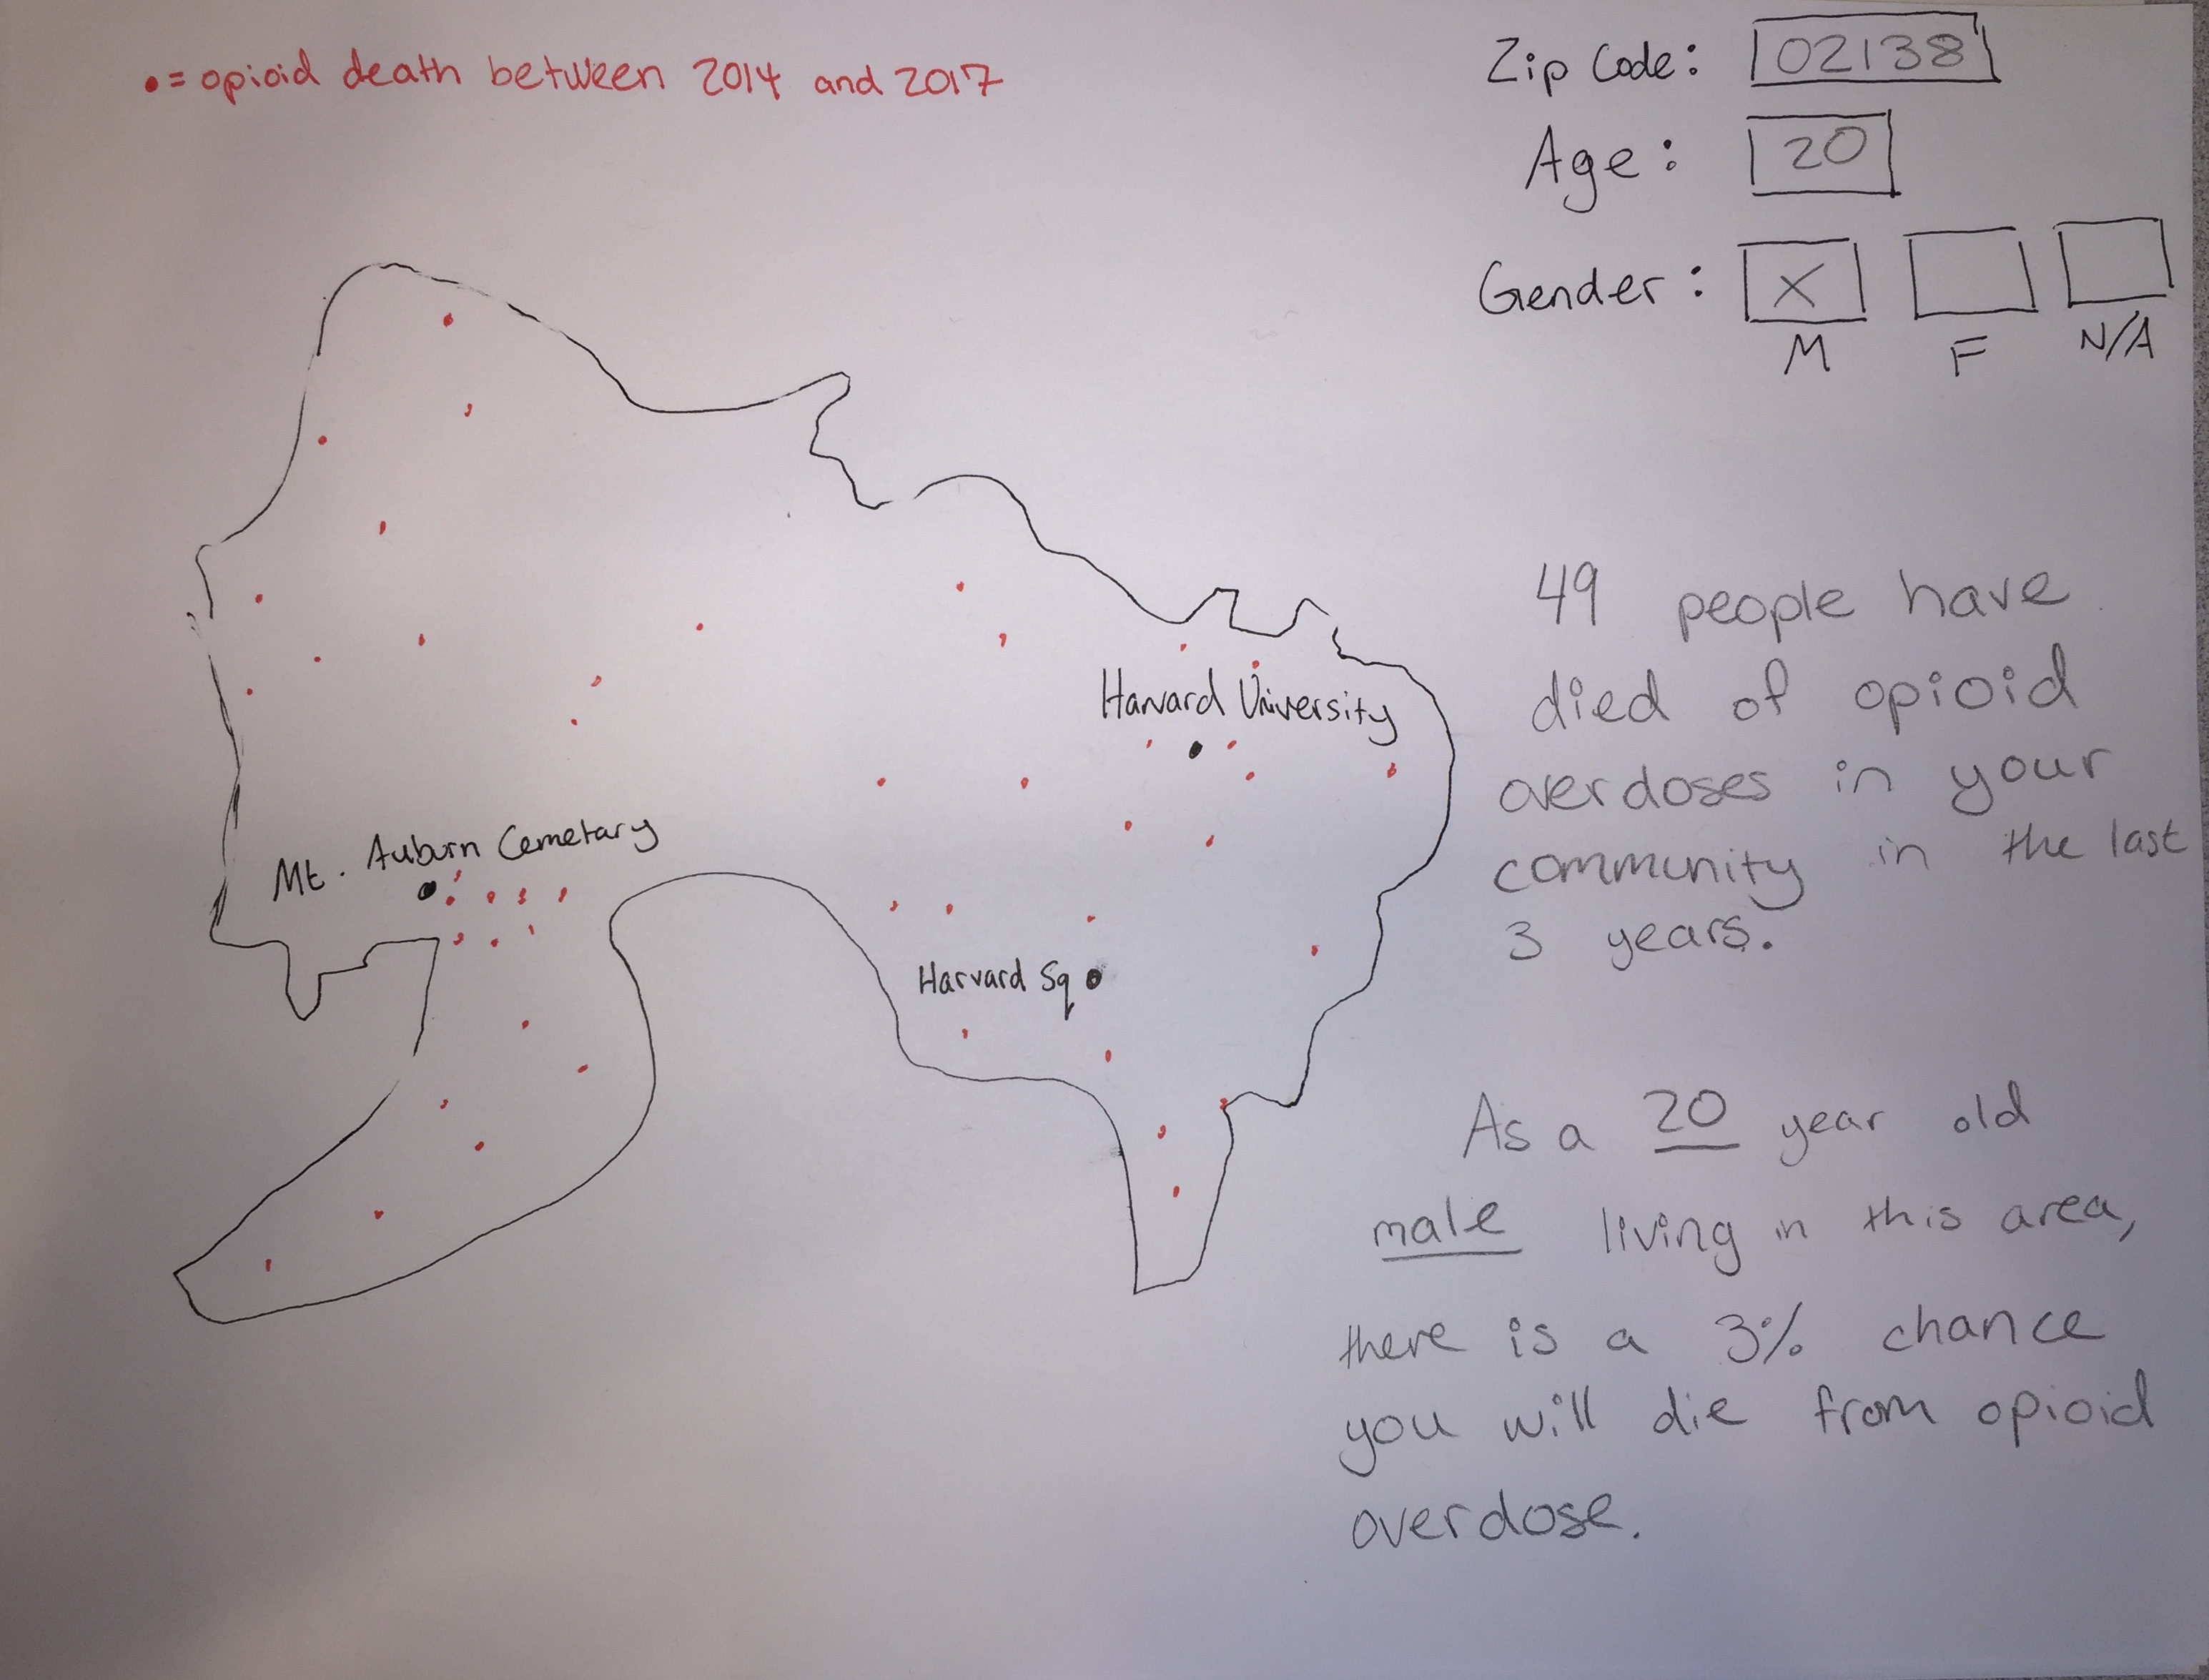 •= opioid death between 2014 and 2017
Zip Code: 02138
Age: 20
Gender: X
M F N/A
Harvard University
Mt. Auburn Cemetary
Harvard Sq
49 people have
died of opioid
overdoses in your
community in the last
3 years.
As a 20 year old
male living in this area,
there is a 3% chance
you will die from opioid
overdose.